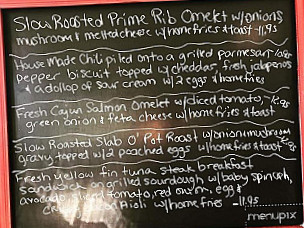 Slow Roasted Prime Rib Omelet w/onions
mushroom & melted cheese w/home fries & toast -11.95
House Made Chili piled onto a grilled parmesan
pepper biscuit topped w/cheddar, fresh jalapenos
& a dollop of sour cream w/2 eggs & homefries
Fresh Cajun Salmon Omelet w/diced tomato,
green onion & feta cheese w/home fries & toast
Slow Roasted Slab O' Pot Roast w/onion & mushroom
gravy topped w/2 poached eggs w/homefries & toast
Fresh yellow fin tuna steak breakfast
sandwich on grilled sourdough w/baby spinach,
avocado, sliced tomato, red onion, egg &
w/home fries -11.95
menupix